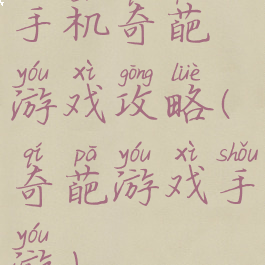 手机奇葩
yóu xì gōng lüè
游戏攻略(
qí pā yóu xì shǒu
奇葩游戏手
yóu
游)